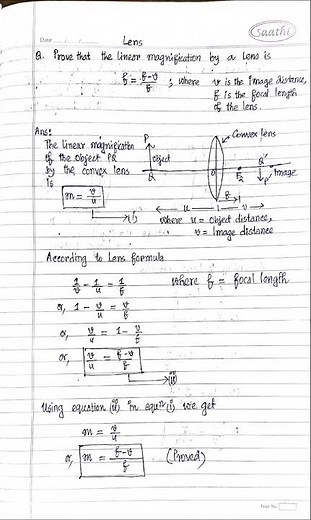 Saathi
Date
Lens
Q. Prove that the linear magnification by a lens is
f = f-v/f ; where v is the image distance,
f is the focal length
of the lens.
Ans:
The linear magnification
of the object PQ
by the convex lens
is
m = v/u
→(i)
P
object
Q
Convex lens
O
F2
Q'
P'
Image
f
u
v
where u = object distance,
v = Image distance
According to Lens formula
1/v - 1/u = 1/f where f = focal length
or, 1 - v/u = v/f
or, v/u = 1 - v/f
or, v/u = f-v/f
→(ii)
Using equation (ii) in equn (i) we get
m = v/u
or, m = f-v/f (Proved)
Page No.